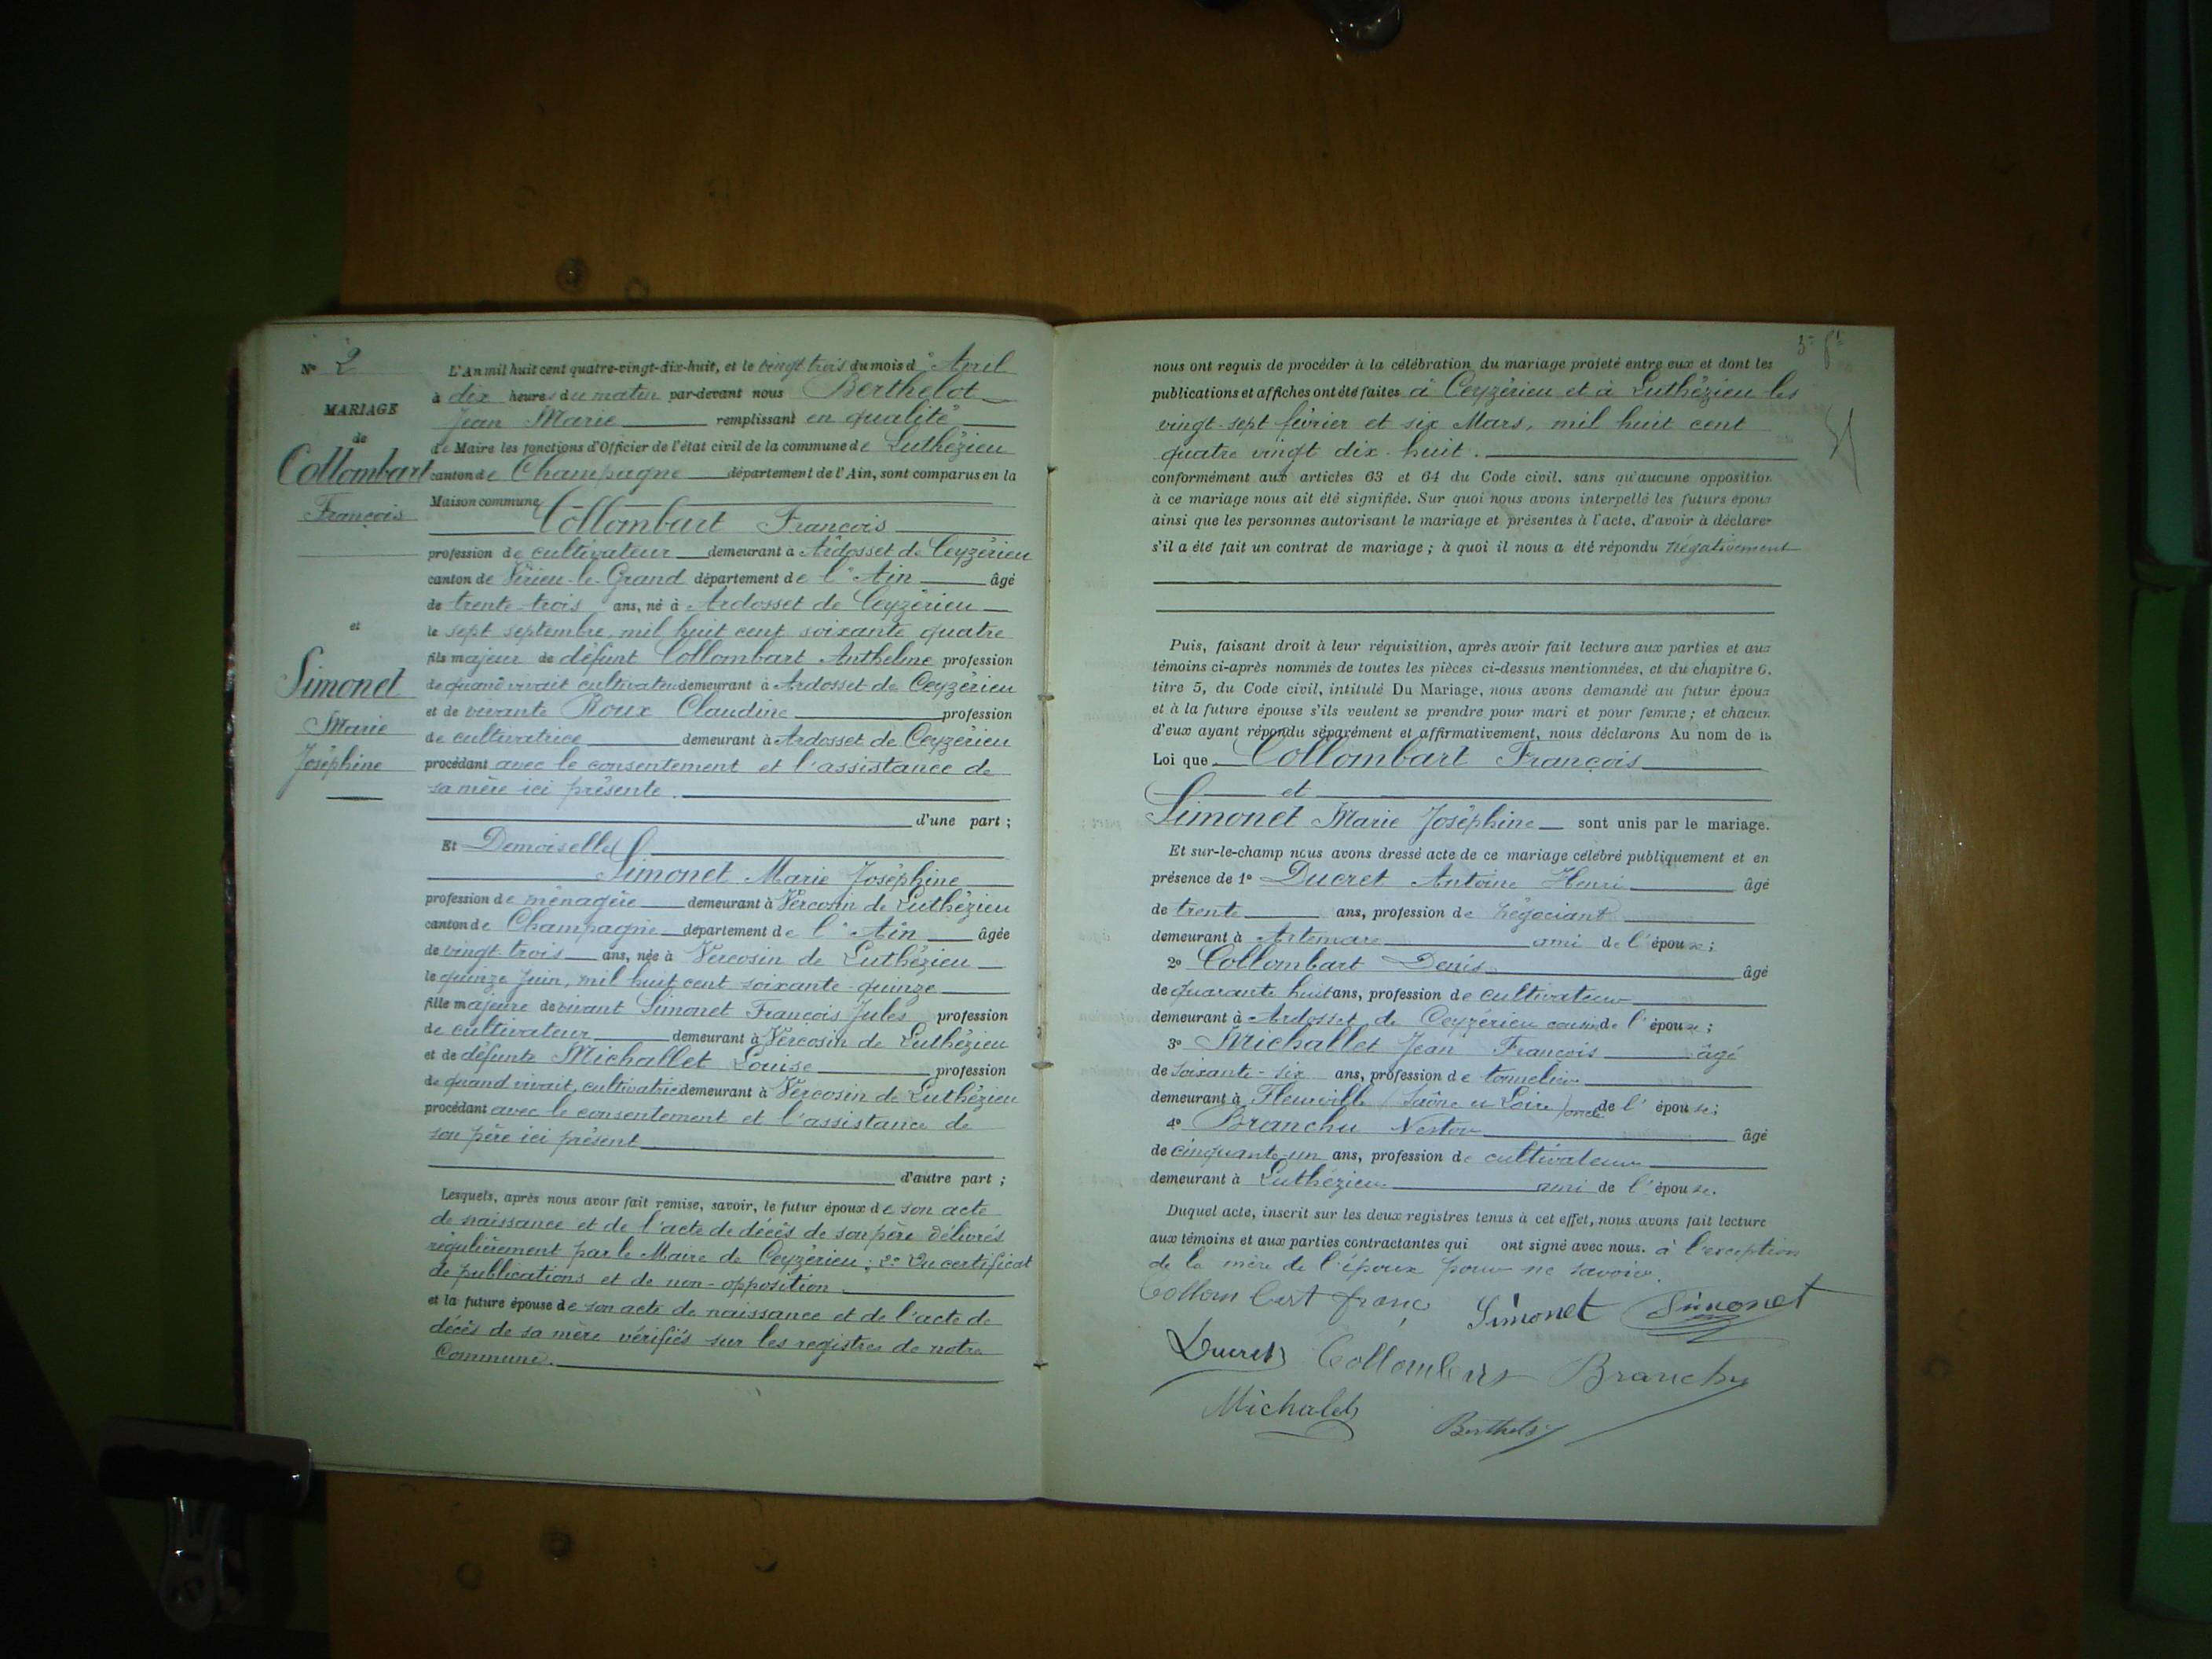 N° 2
MARIAGE
de
Collombart
François
et
Simonet
Marie
Joséphine
L'An mil huit cent quatre-vingt-dix-huit, et le vingt trois du mois d'Avril
à dix heures du matin par-devant nous Berthelot
Jean Marie remplissant en qualité
de Maire les fonctions d'Officier de l'état civil de la commune de Luthézieu
canton de Champagne département de l'Ain, sont comparus en la
Maison commune
Collombart François
profession de cultivateur demeurant à Ardosset de Ceyzérieu
canton de Virieu-le-Grand département de l'Ain âgé
de trente-trois ans, né à Ardosset de Ceyzérieu
le sept septembre, mil huit cent soixante quatre
fils majeur de défunt Collombart Anthelme profession
de quand vivait cultivateur demeurant à Ardosset de Ceyzérieu
et de vivante Roux Claudine profession
de cultivatrice demeurant à Ardosset de Ceyzérieu
procédant avec le consentement et l'assistance de
sa mère ici présente.
d'une part ;
Et Demoiselle
Simonet Marie Joséphine
profession de ménagère demeurant à Vercosin de Luthézieu
canton de Champagne département de l'Ain âgée
de vingt-trois ans, née à Vercosin de Luthézieu
le quinze Juin, mil huit cent soixante-quinze
fille majeure de vivant Simonet François Jules profession
de cultivateur demeurant à Vercosin de Luthézieu
et de défunte Michallet Louise profession
de quand vivait, cultivatrice demeurant à Vercosin de Luthézieu
procédant avec le consentement et l'assistance de
son père ici présent
d'autre part ;
Lesquels, après nous avoir fait remise, savoir, le futur époux de son acte
de naissance et de l'acte de décès de son père délivrés
régulièrement par le Maire de Ceyzérieu ; 2° Du certificat
de publications et de non-opposition.
et la future épouse de son acte de naissance et de l'acte de
décès de sa mère vérifiés sur les registres de notre
Commune.
nous ont requis de procéder à la célébration du mariage projeté entre eux et dont les
publications et affiches ont été faites à Ceyzérieu et à Luthézieu les
vingt-sept février et six Mars, mil huit cent
quatre vingt dix-huit.
conformément aux articles 63 et 64 du Code civil, sans qu'aucune opposition
à ce mariage nous ait été signifiée. Sur quoi nous avons interpellé les futurs époux
ainsi que les personnes autorisant le mariage et présentes à l'acte, d'avoir à déclarer
s'il a été fait un contrat de mariage ; à quoi il nous a été répondu négativement
Puis, faisant droit à leur réquisition, après avoir fait lecture aux parties et aux
témoins ci-après nommés de toutes les pièces ci-dessus mentionnées, et du chapitre 6,
titre 5, du Code civil, intitulé Du Mariage, nous avons demandé au futur époux
et à la future épouse s'ils veulent se prendre pour mari et pour femme ; et chacun
d'eux ayant répondu séparément et affirmativement, nous déclarons Au nom de la
Loi que Collombart François
et
Simonet Marie Joséphine sont unis par le mariage.
Et sur-le-champ nous avons dressé acte de ce mariage célébré publiquement et en
présence de 1° Ducret Antoine Henri âgé
de trente ans, profession de négociant
demeurant à Artemare ami de l'épouse ;
2° Collombart Denis âgé
de quarante huit ans, profession de cultivateur
demeurant à Ardosset de Ceyzérieu cousin de l'époux ;
3° Michallet Jean François âgé
de soixante-six ans, profession de tonnelier
demeurant à Fleurville (Saône et Loire) oncle de l'épouse ;
4° Branchu Nestor âgé
de cinquante-un ans, profession de cultivateur
demeurant à Luthézieu ami de l'épouse.
Duquel acte, inscrit sur les deux registres tenus à cet effet, nous avons fait lecture
aux témoins et aux parties contractantes qui ont signé avec nous. à l'exception
de la mère de l'époux pour ne savoir.
Collombart franç Simonet Simonet
Ducret Collombart Branchu
Michalet Berthelot